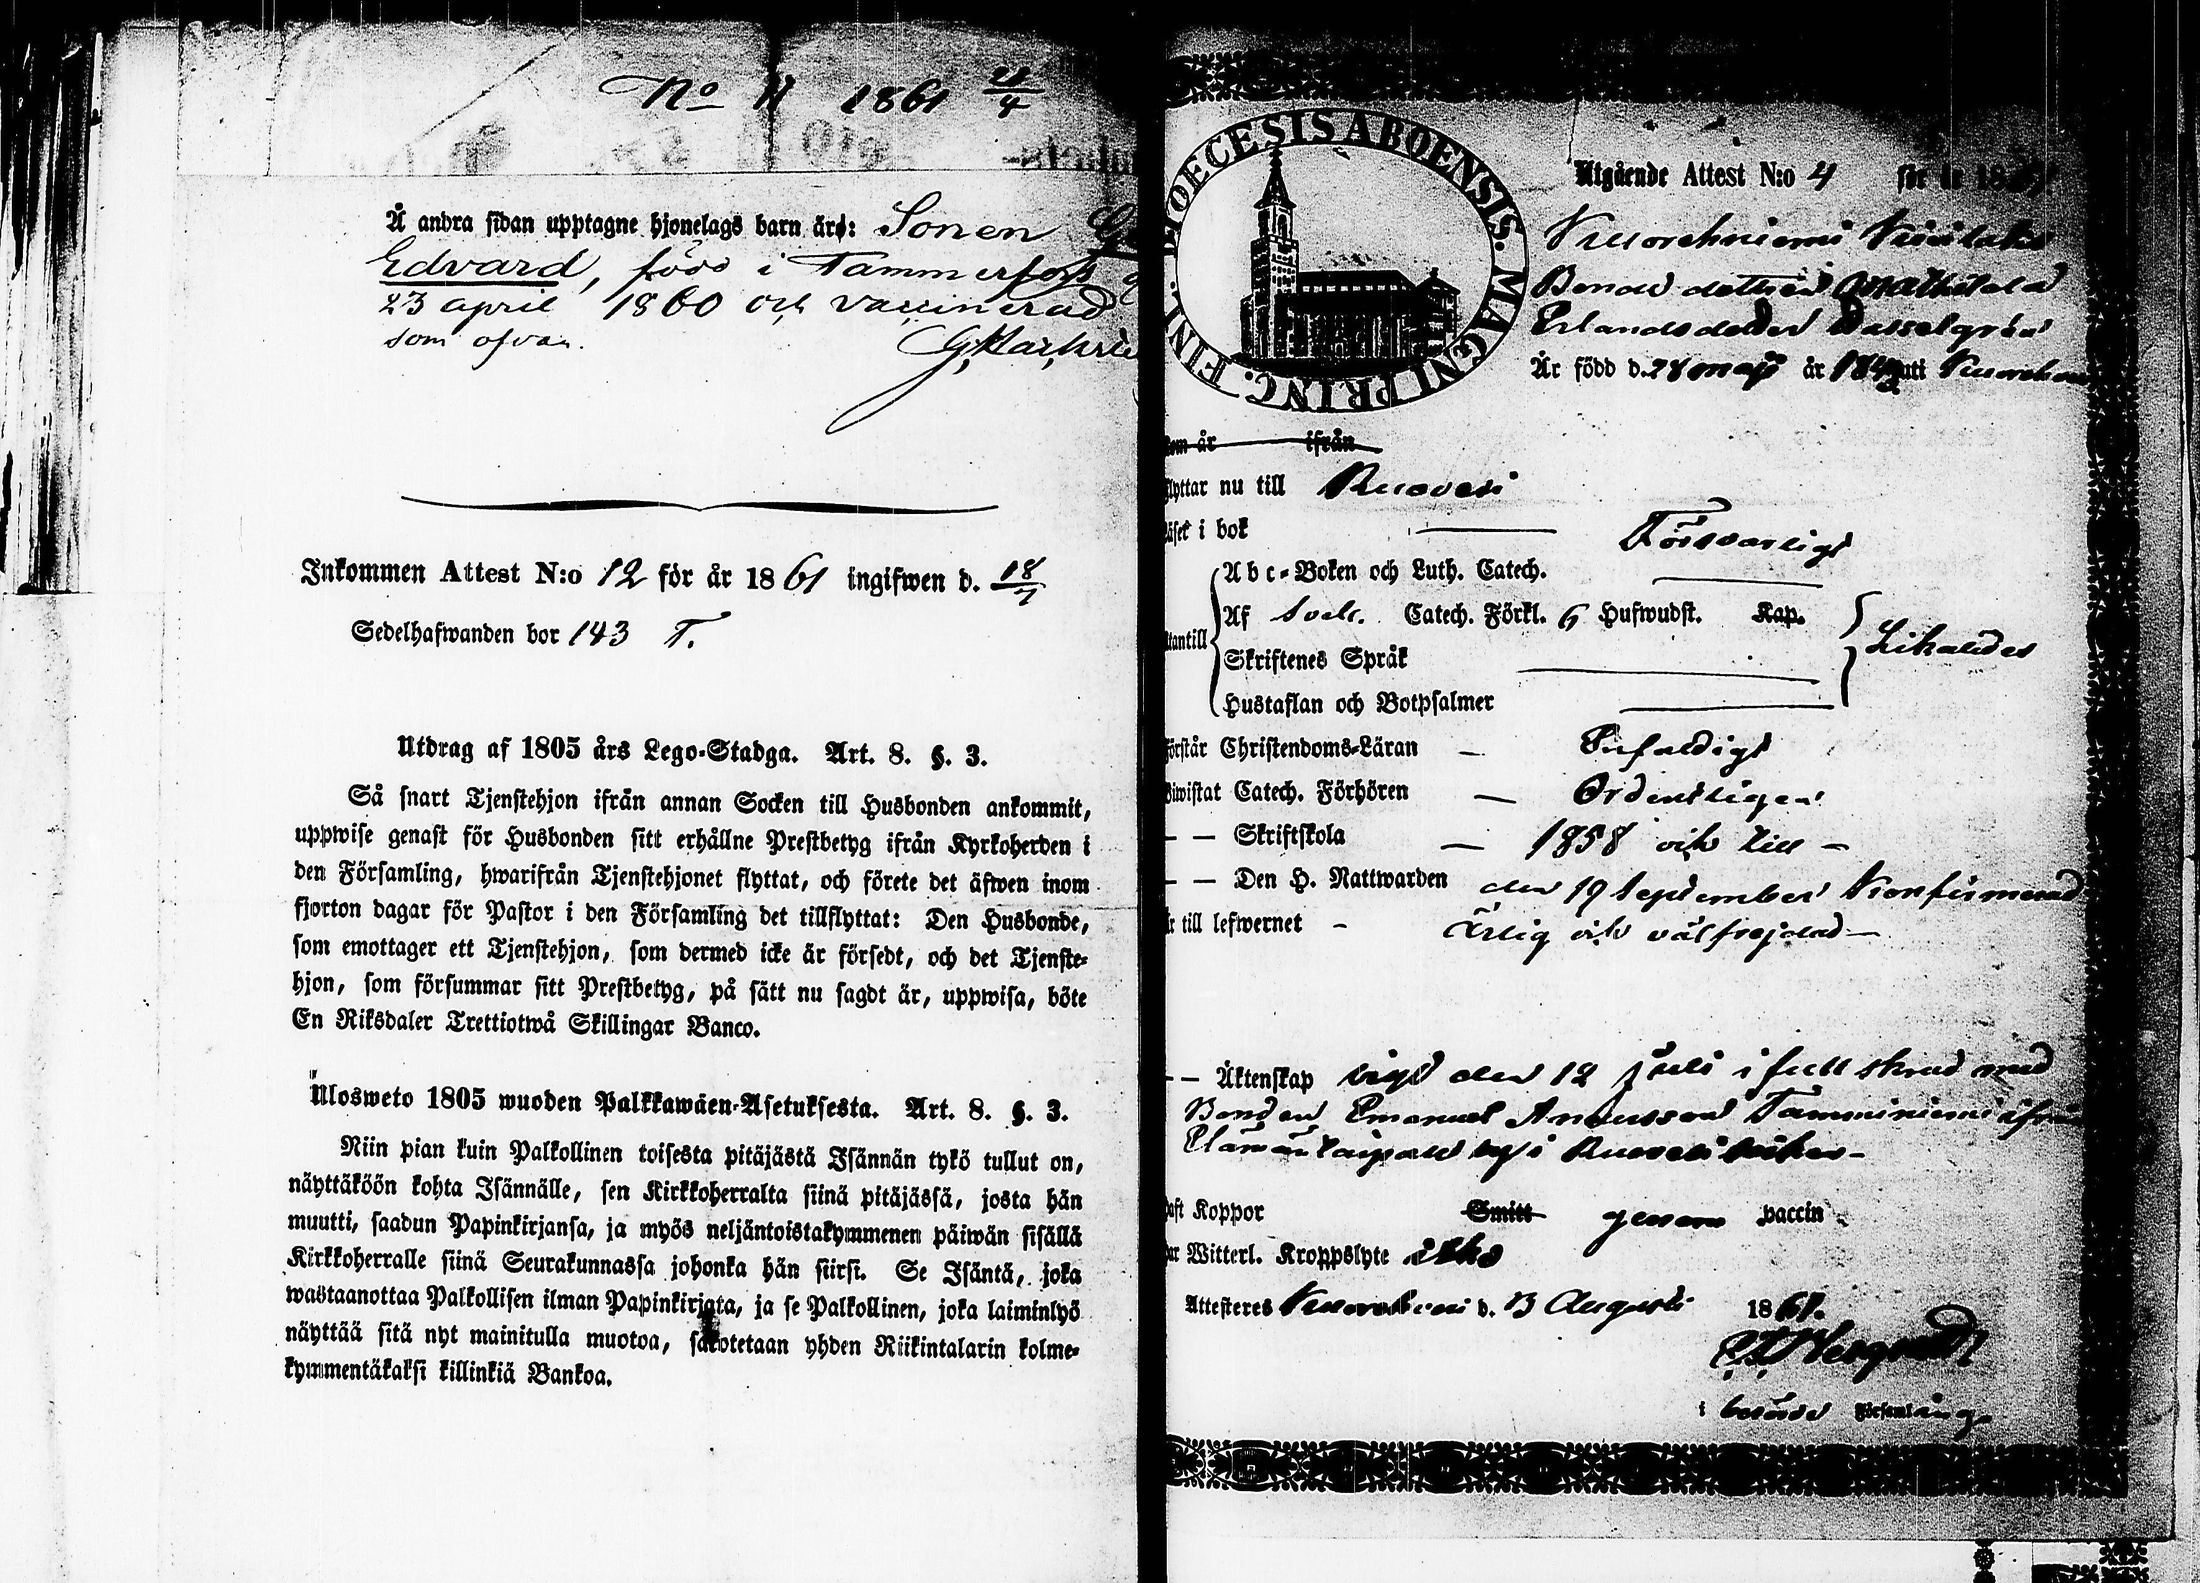 No 11 1861 21/4
Å andra sidan upptagne hjonelags barn äro: Sonen
Edvard, född i Tammerfors
23 april 1860 och vaccinerad
som ofvan.
Inkommen Attest N:o 12 för år 1861 ingifwen d. 18/7
Sedelhafwanden bor 143 T.
Utdrag af 1805 års Lego-Stadga. Art. 8. §. 3.
Så snart Tjenstehjon ifrån annan Socken till Husbonden ankommit,
uppwise genast för Husbonden sitt erhållne Prestbetyg ifrån Kyrkoherden i
den Församling, hwarifrån Tjenstehjonet flyttat, och förete det äfwen inom
fjorton dagar för Pastor i den Församling det tillflyttat: Den Husbonde,
som emottager ett Tjenstehjon, som dermed icke är försedt, och det Tjenste-
hjon, som försummar sitt Prestbetyg, på sätt nu sagdt är, uppwisa, böte
En Riksdaler Trettiotwå Skillingar Banco.
Ulosweto 1805 wuoden Palkkawäen-Asetuksesta. Art. 8. §. 3.
Niin pian kuin Palkollinen toisesta pitäjästä Isännän tykö tullut on,
näyttäköön kohta Isännälle, sen Kirkkoherralta siinä pitäjässä, josta hän
muutti, saadun Papinkirjansa, ja myös neljäntoistakymmenen päiwän sisällä
Kirkkoherralle siinä Seurakunnassa johonka hän siirsi. Se Isäntä, joka
wastaanottaa Palkollisen ilman Papinkirjata, ja se Palkollinen, joka laiminlyö
näyttää sitä nyt mainitulla muotoa, sakotetaan yhden Riikintalarin kolme-
kymmentäkaksi killinkiä Bankoa.
DIOECESIS ABOENSIS. MAGNI PRINC. FINL.
Utgående Attest N:o 4 för år 18
Kuorehniemi
Bonde dottren Mathilda
Erlandsdotter
Är född d. 28 maji år 1842 uti Kuorehvesi
som år ifrån
flyttar nu till Ruovesi
Läser i bok Försvarligt
Abc-Boken och Luth. Catech.
Utantill Af Sveb. Catech. Förkl. 6 Hufwudst. Kap. Likaledes
Skriftenes Språk
Hustaflan och Botpsalmer
Förstår Christendoms-Läran — Enfaldigt
Biwistat Catech. Förhören — Ordentligen
— — Skriftskola — 1858 och till —
— — Den H. Nattwarden den 19 September Konfirmerad
Är till lefwernet - Ärlig och välfrejdad —
— — Äktenskap vigd den 12 Juli i full skrud med
Bonden Emanuel Andersson Tamminiemi ifrån
by i Ruovesi socken —
haft Koppor Smitt genom vaccin
har Witterl. Kroppslyte icke
Attesteras Kuorehvesi d. 13 Augusti 1861.
i berörde Församling